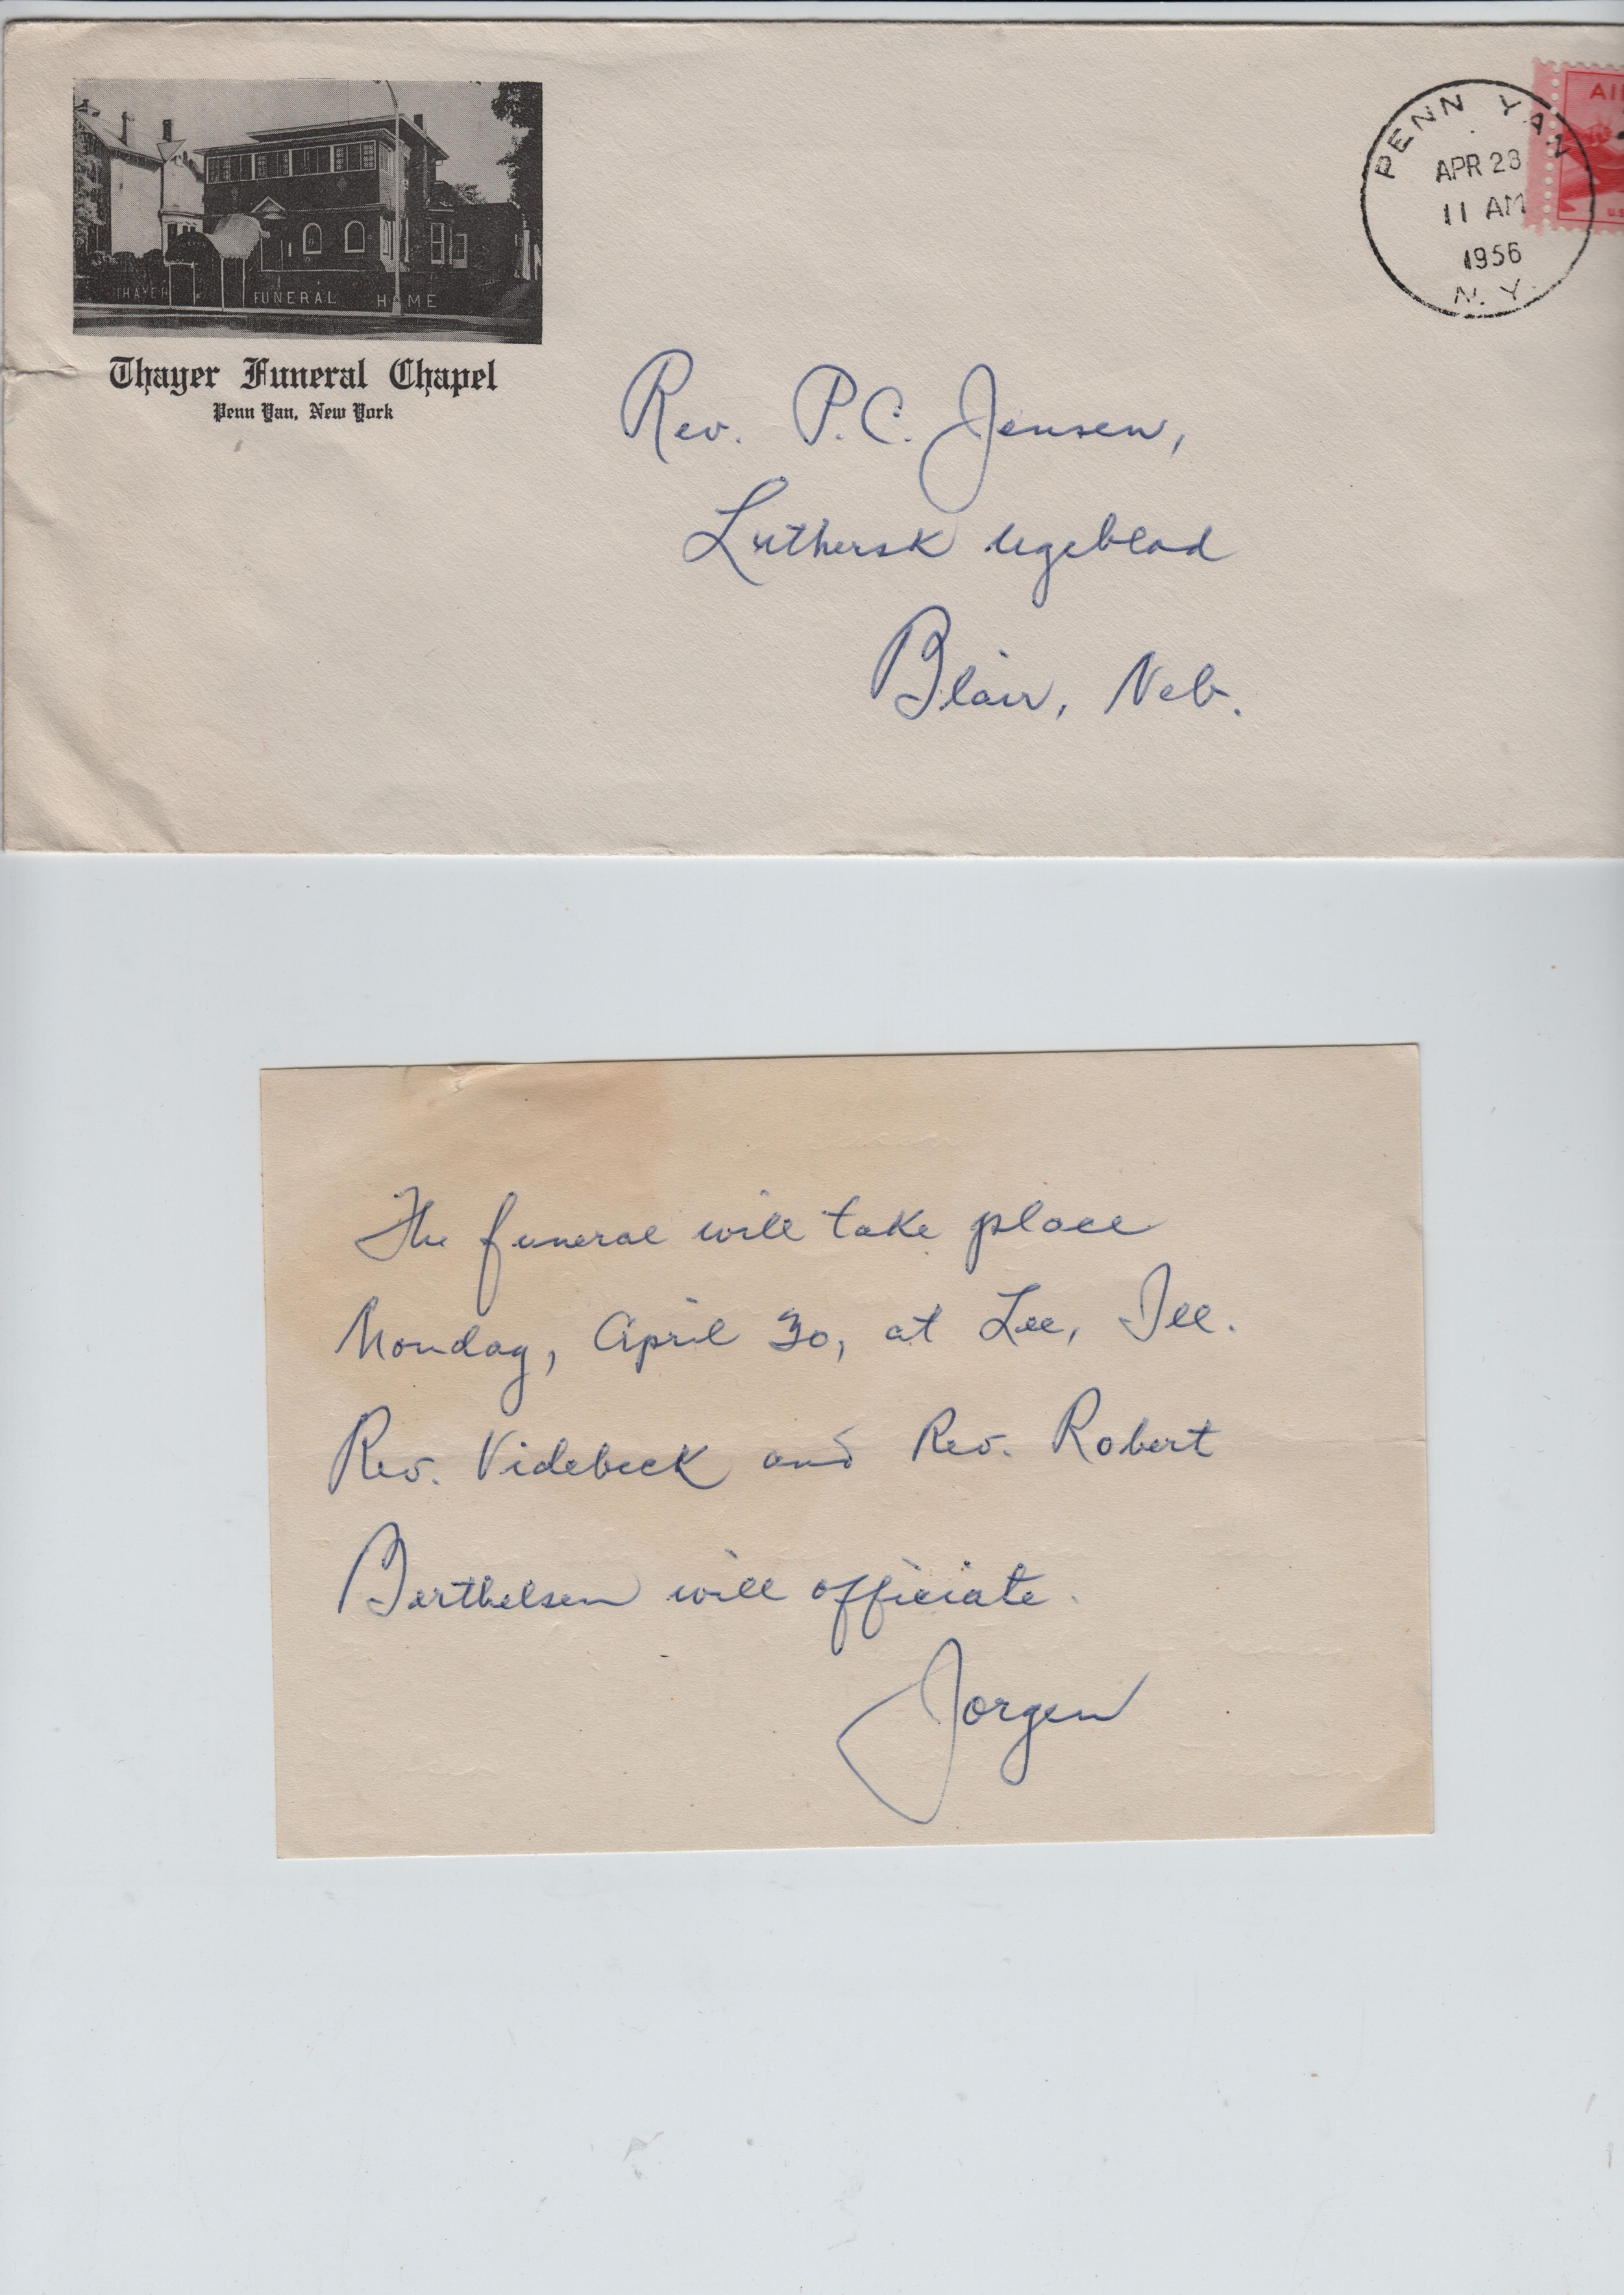 THAYER FUNERAL HOME
Thayer Funeral Chapel
Penn Yan, New York
PENN YAN
APR 28
11 AM
1956
N. Y.
AI
U.S
Rev. P.C. Jensen,
Luthersk Ugeblad
Blair, Neb.
The funeral will take place
Monday, April 30, at Lee, Ill.
Rev. Videbeck and Rev. Robert
Berthelsen will officiate.
Jorgen